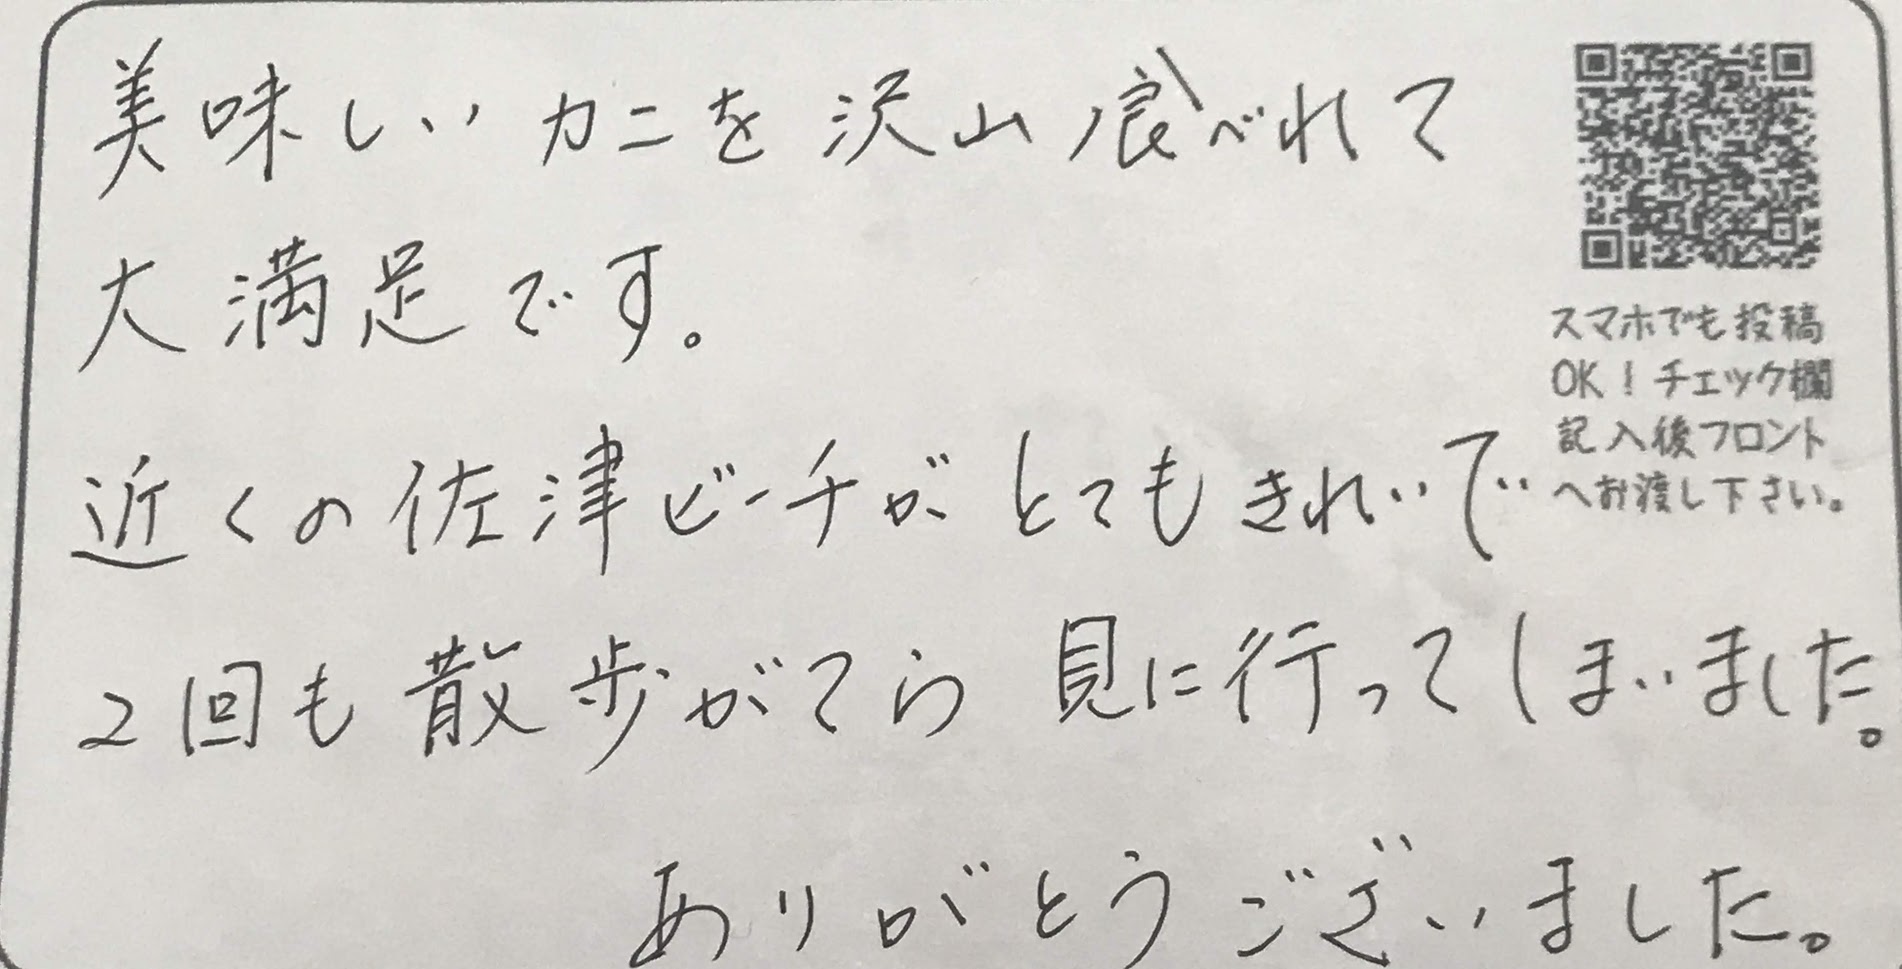 美味しいカニを沢山食べれて
大満足です。
近くの佐津ビーチがとてもきれいで
2回も散歩がてら見に行ってしまいました。
ありがとうございました。
スマホでも投稿
OK！チェック欄
記入後フロント
へお渡し下さい。